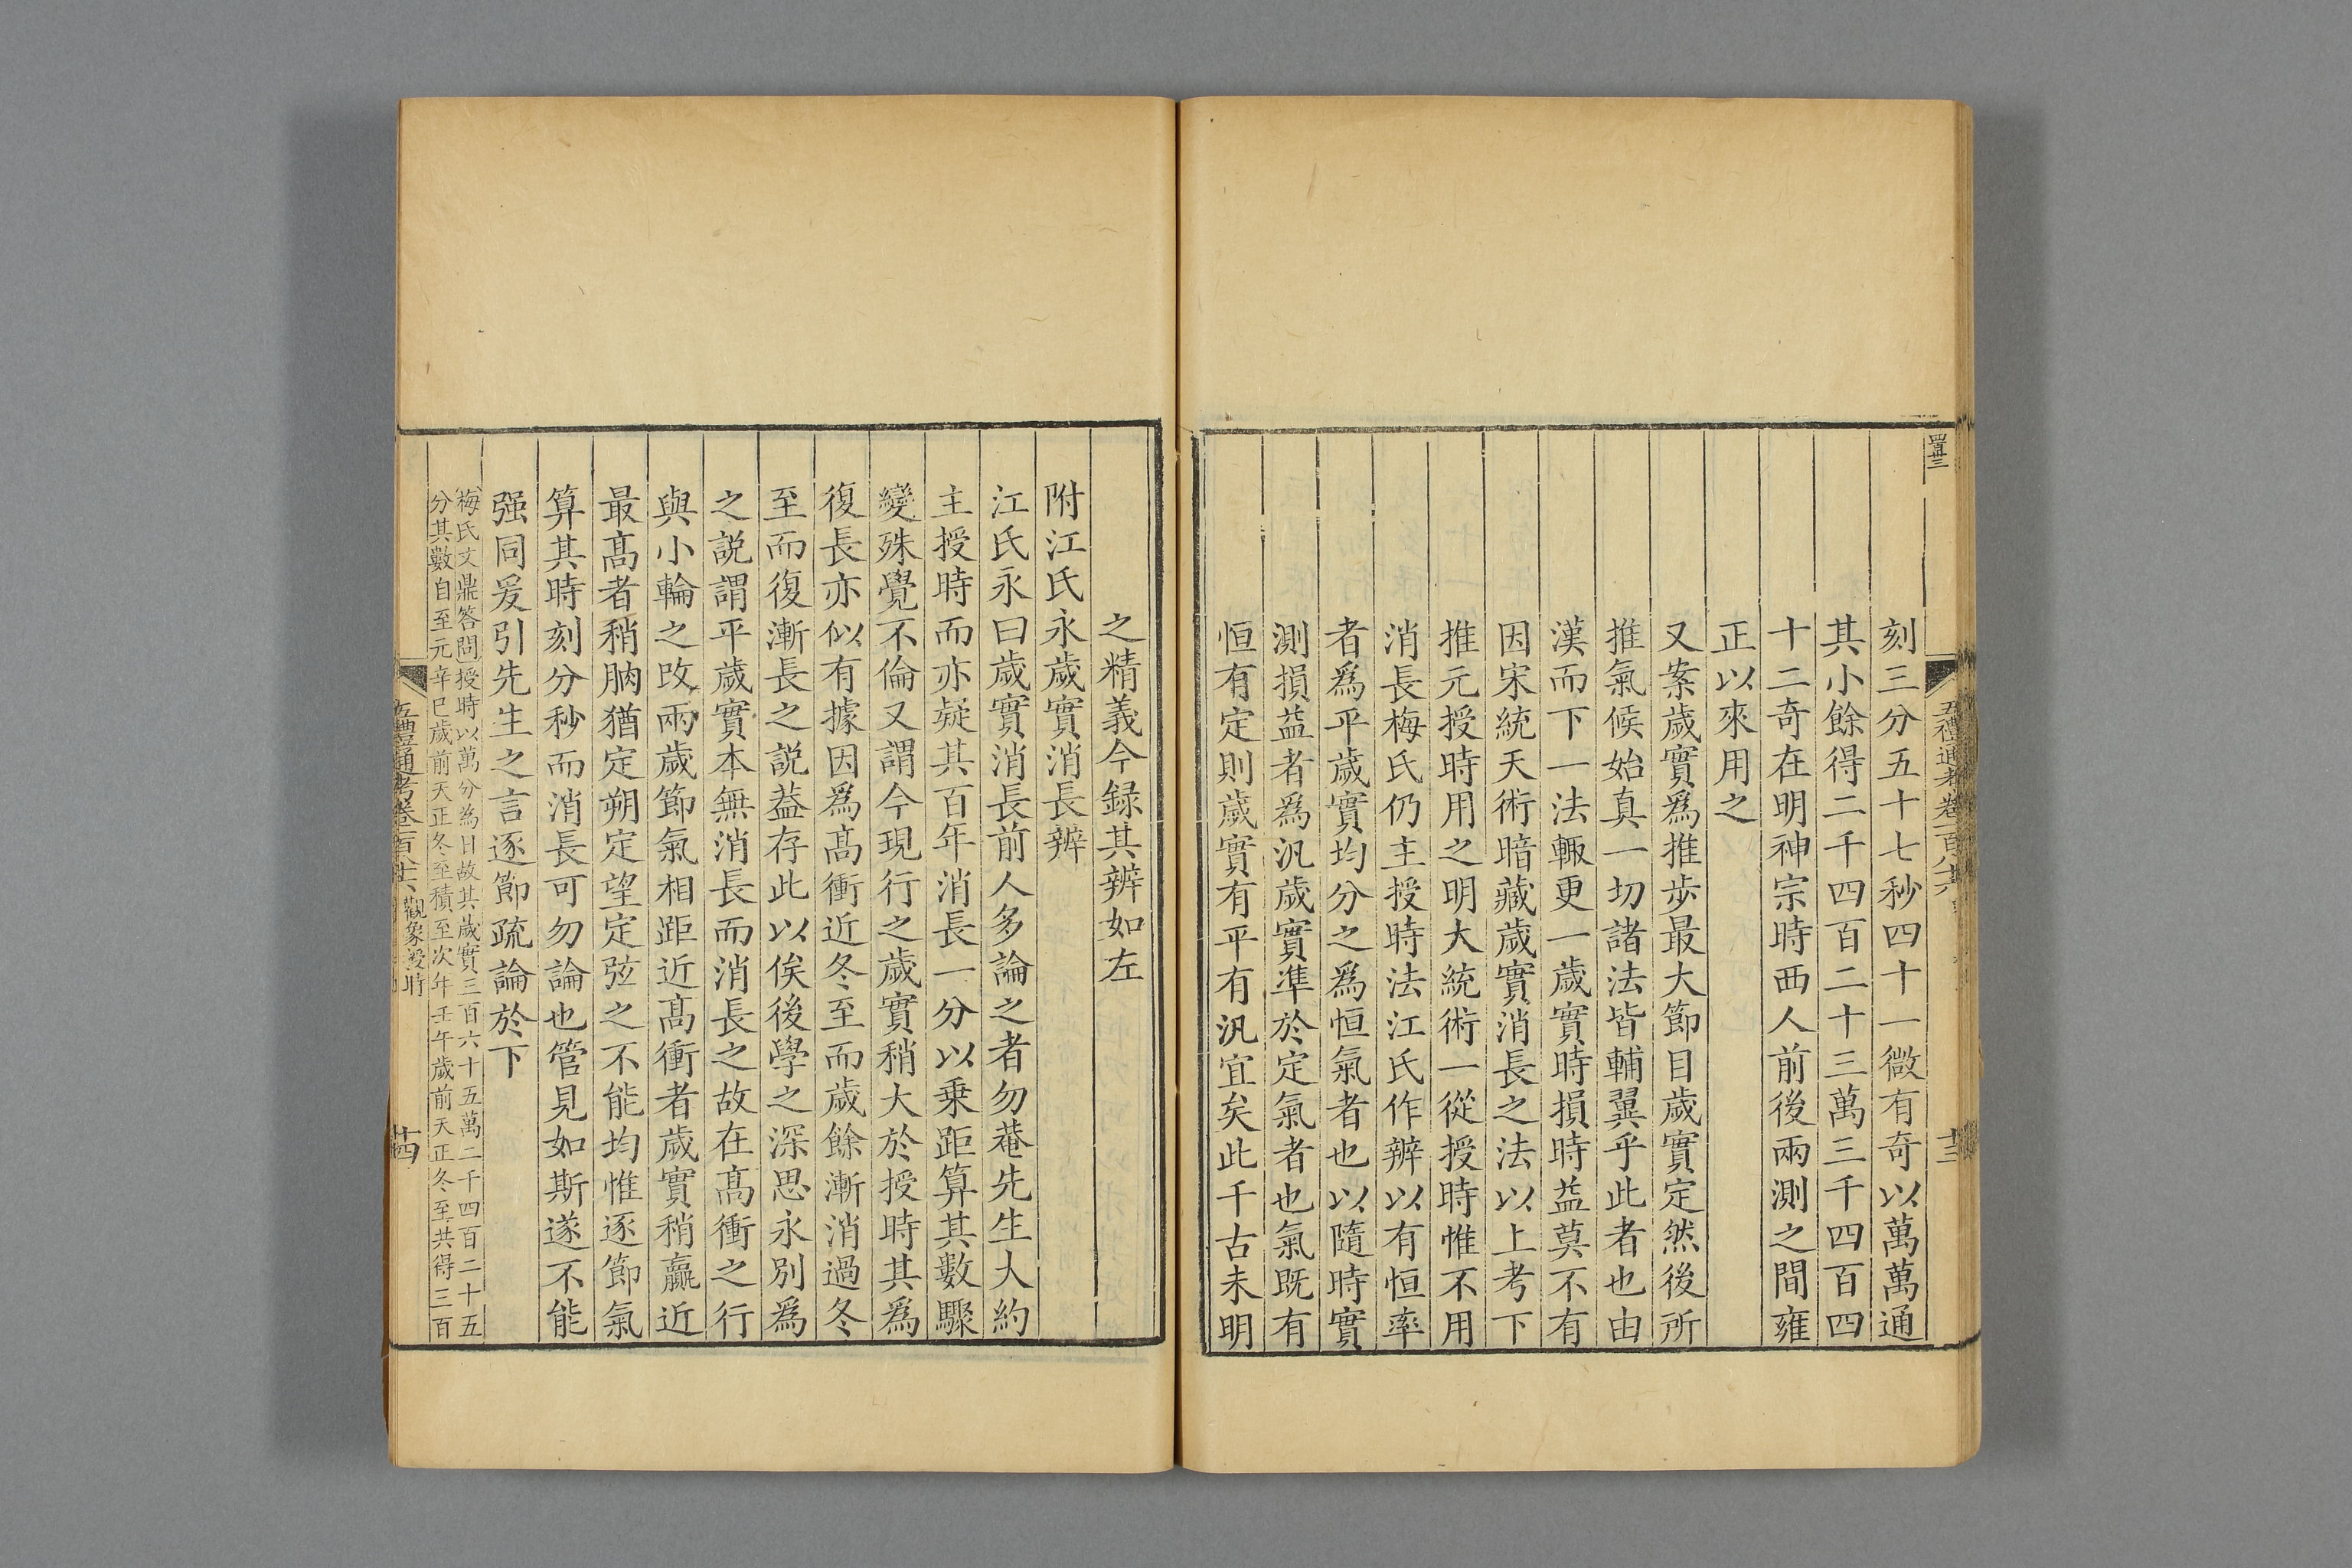 刻三分五十七秒四十一微有奇以萬萬通
其小餘得二千四百二十三萬三千四百四
十二奇在明神宗時西人前後兩測之間雍
正以來用之
又案歲實爲推歩最大節目歲實定然後所
推氣候始真一切諸法皆輔翼乎此者也由
漢而下一法輙更一歲實時損時益莫不有
因宋統天術暗藏歲實消長之法以上考下
推元授時用之明大統術一從授時惟不用
消長梅氏仍主授時法江氏作辨以有恒率
者爲平歲實均分之爲恒氣者也以隨時實
測損益者爲汎歲實凖於定氣者也氣既有
恒有定則歲實有平有汎宜矣此千古未明
之精義今録其辨如左
附江氏永歲實消長辨
江氏永曰歲實消長前人多論之者勿菴先生大約
主授時而亦疑其百年消長一分以乗距算其數驟
變殊覺不倫又謂今現行之歲實稍大於授時其爲
復長亦似有據因爲髙衝近冬至而歲餘漸消過冬
至而復漸長之説葢存此以俟後學之深思永別爲
之説謂平歲實本無消長而消長之故在髙衝之行
與小輪之攺兩歲節氣相距近髙衝者歲實稍贏近
最髙者稍朒猶定朔定望定弦之不能均惟逐節氣
算其時刻分秒而消長可勿論也管見如斯遂不能
强同爰引先生之言逐節疏論於下
梅氏文鼎答問授時以萬分爲日故其歲實三百六十五萬二千四百二十五
分其數自至元辛巳歲前天正冬至積至次年壬午歲前天正冬至共得三百
五禮通考卷一百八十六 觀象授時
十四